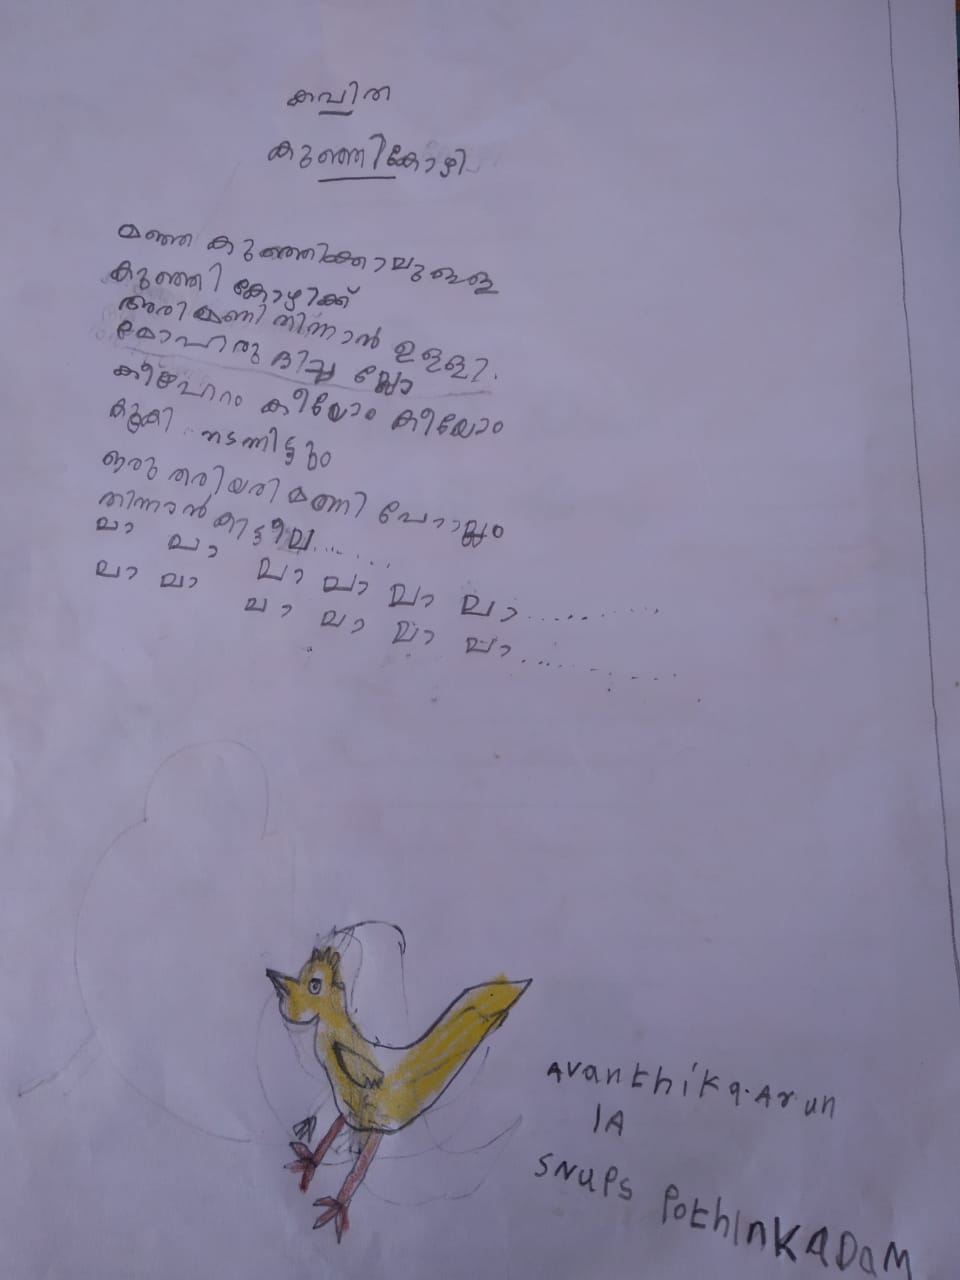 കവിത
കുഞ്ഞികോഴി
മഞ്ഞ കുഞ്ഞിക്കാലുള്ള
കുഞ്ഞി കോഴിക്ക്
അരിമണി തിന്നാൻ ഉള്ളി.
മോഹമുദിച്ചല്ലോ
കീയോം കീയോം
കൂകി നടന്നിട്ടും
ഒരു തരിയരി മണി പോലും
തിന്നാൻ കിട്ടീല......
ലാ ലാ ലാ ലാ ലാ ലാ......
ലാ ലാ ലാ ലാ ലാ ലാ......
Avanthika.Arun
1A
SNUPS PothInKADaM